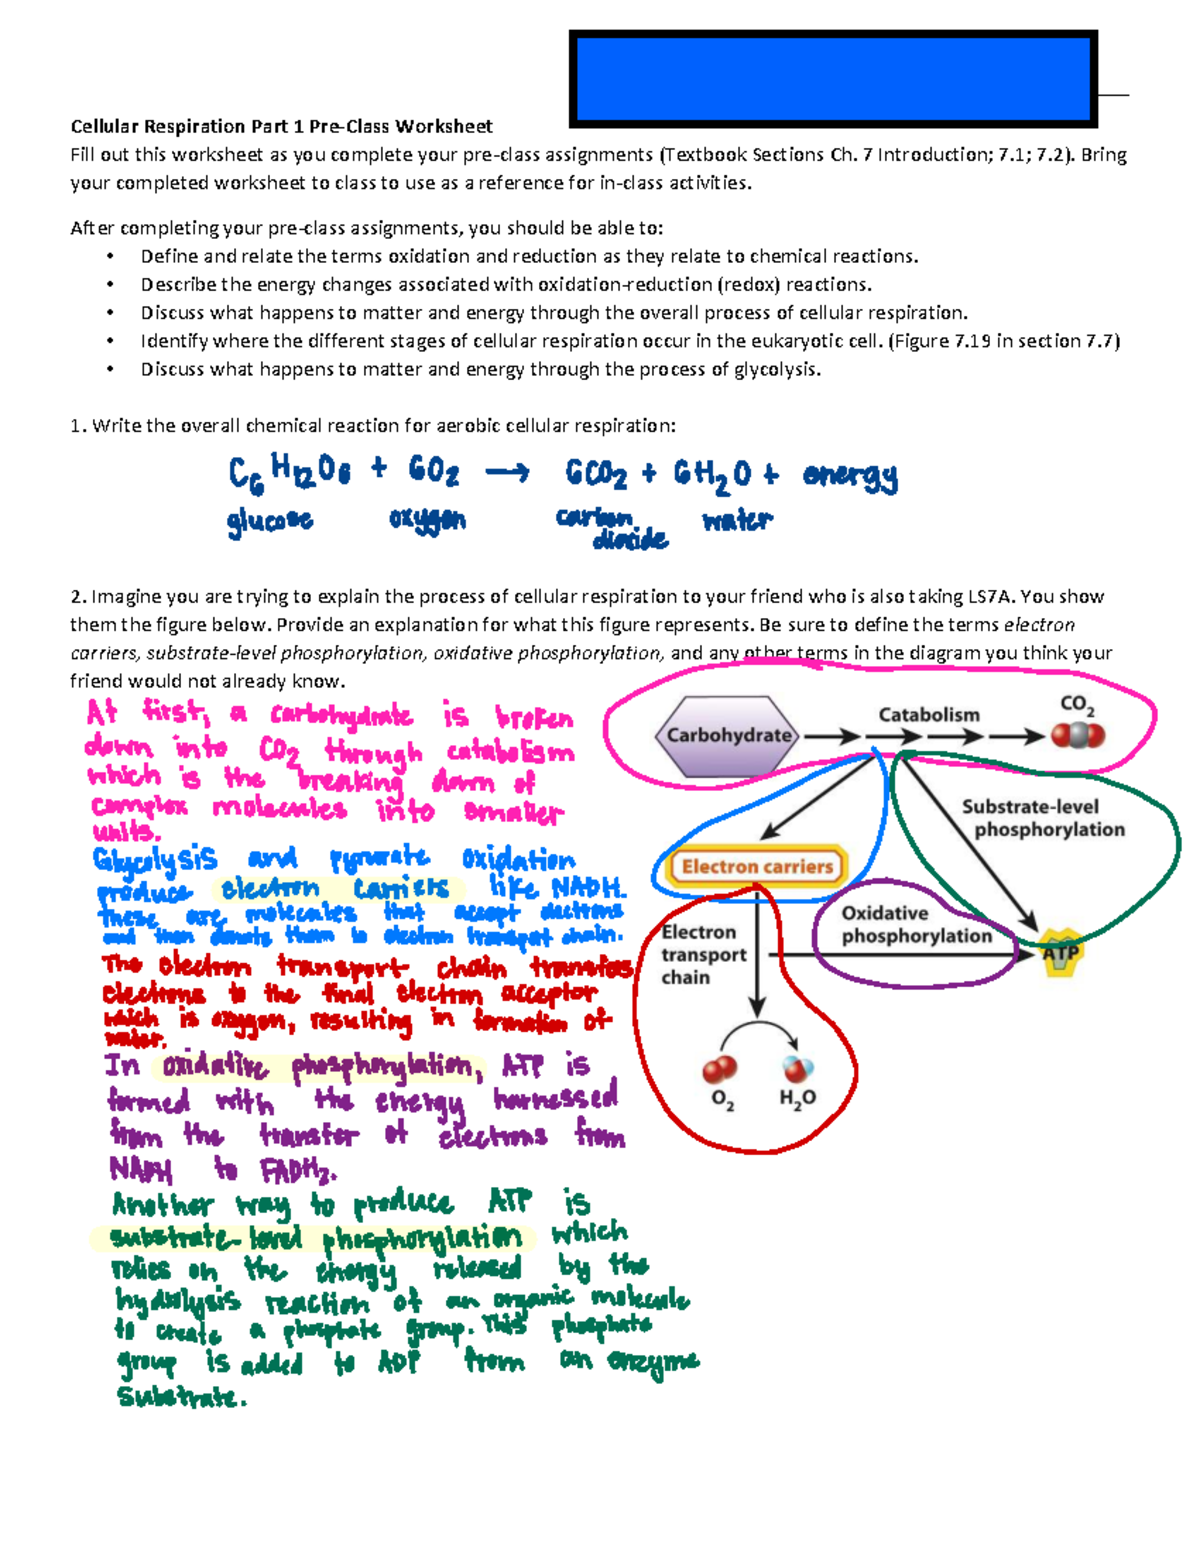 Cellular Respiration Part 1 Pre-Class Worksheet
Fill out this worksheet as you complete your pre-class assignments (Textbook Sections Ch. 7 Introduction; 7.1; 7.2). Bring
your completed worksheet to class to use as a reference for in-class activities.
After completing your pre-class assignments, you should be able to:
• Define and relate the terms oxidation and reduction as they relate to chemical reactions.
• Describe the energy changes associated with oxidation-reduction (redox) reactions.
• Discuss what happens to matter and energy through the overall process of cellular respiration.
• Identify where the different stages of cellular respiration occur in the eukaryotic cell. (Figure 7.19 in section 7.7)
• Discuss what happens to matter and energy through the process of glycolysis.
1. Write the overall chemical reaction for aerobic cellular respiration:
C6H12O6 + 6O2 → 6CO2 + 6H2O + energy
glucose oxygen carbon water
dioxide
2. Imagine you are trying to explain the process of cellular respiration to your friend who is also taking LS7A. You show
them the figure below. Provide an explanation for what this figure represents. Be sure to define the terms electron
carriers, substrate-level phosphorylation, oxidative phosphorylation, and any other terms in the diagram you think your
friend would not already know.
At first, a carbohydrate is broken
down into CO2 through catabolism
which is the breaking down of
complex molecules into smaller
units.
Glycolysis and pyruvate oxidation
produce electron carriers like NADH.
these are molecules that accept electrons
and then donate them to electron transport chain.
The electron transport chain transfers
electrons to the final electron acceptor
which is oxygen, resulting in formation of
water.
In oxidative phosphorylation, ATP is
formed with the energy harnessed
from the transfer of electrons from
NADH to FADH2.
Another way to produce ATP is
substrate-level phosphorylation which
relies on the energy released by the
hydrolysis reaction of an organic molecule
to create a phosphate group. This phosphate
group is added to ADP from an enzyme
substrate.
Carbohydrate
Catabolism
CO2
Substrate-level
phosphorylation
Electron carriers
Oxidative
phosphorylation
Electron
transport
chain
ATP
O2 H2O